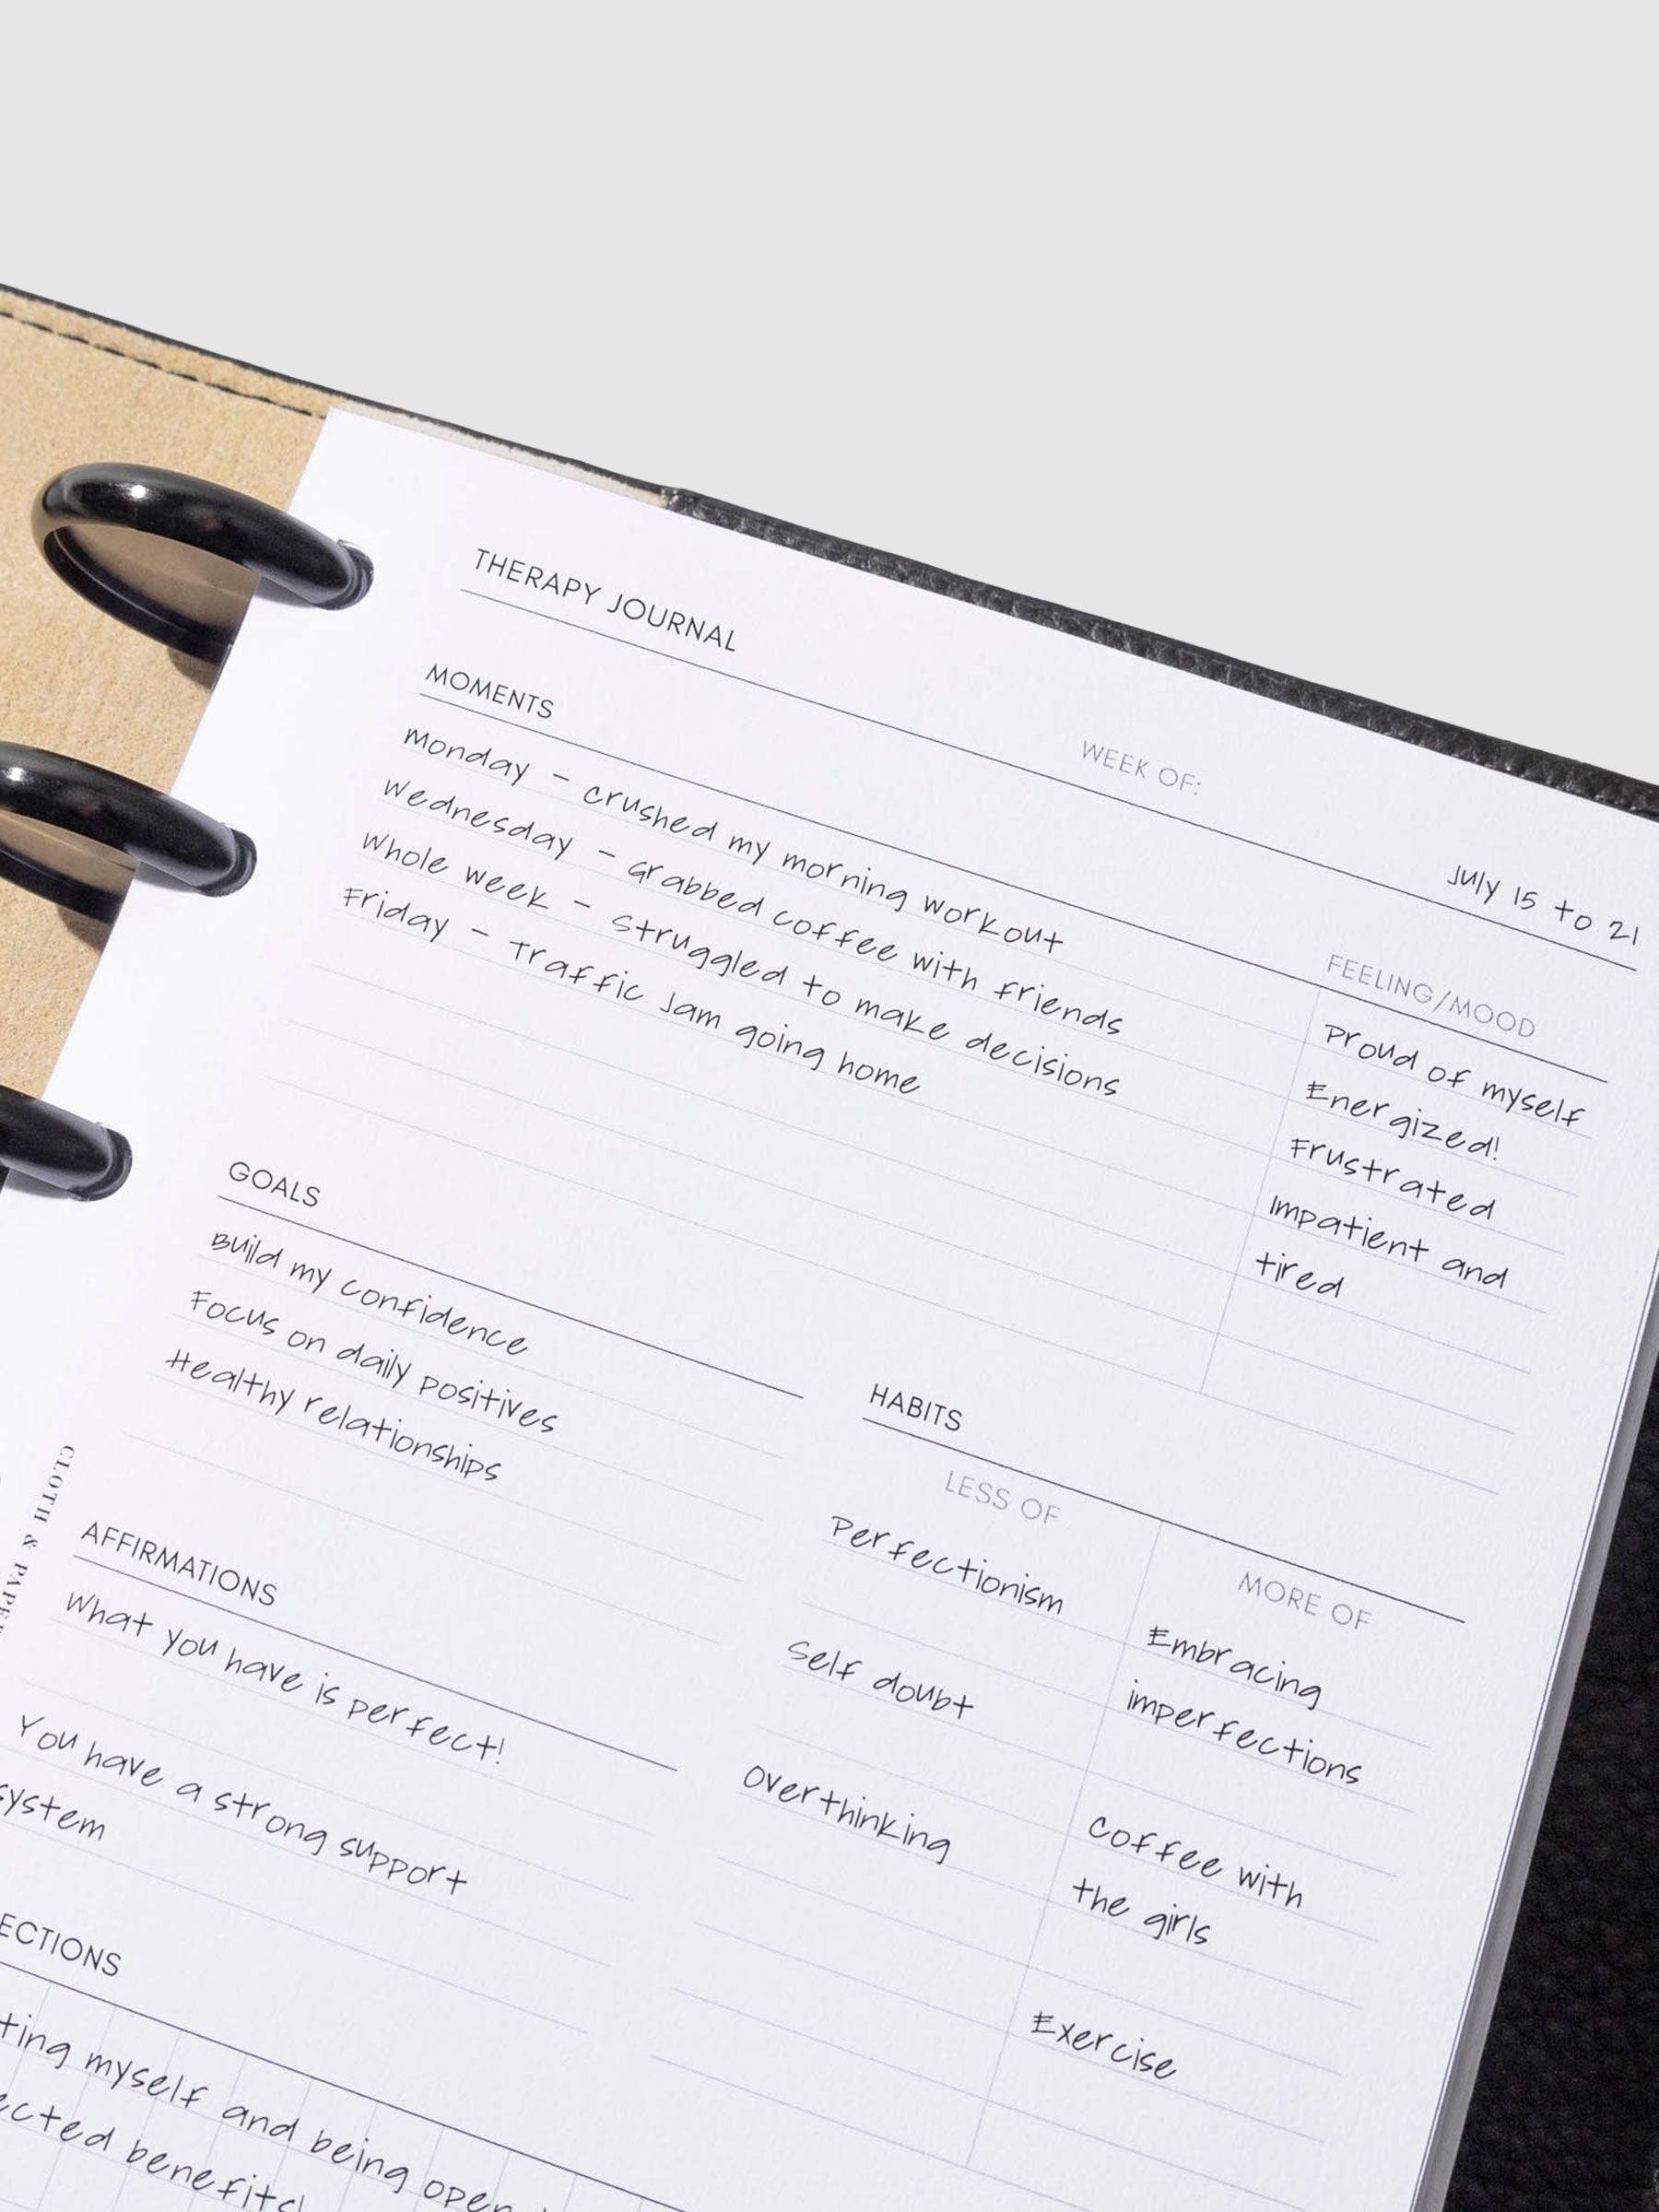 THERAPY JOURNAL
WEEK OF:
July 15 to 21
MOMENTS
FEELING/MOOD
Monday - crushed my morning workout
Proud of myself
Wednesday - Grabbed coffee with friends
Energized!
Whole week - Struggled to make decisions
Frustrated
Friday - Traffic Jam going home
Impatient and
tired
GOALS
Build my confidence
Focus on daily positives
Healthy relationships
HABITS
LESS OF
Perfectionism
Self doubt
Overthinking
MORE OF
Embracing
imperfections
Coffee with
the girls
Exercise
AFFIRMATIONS
What you have is perfect!
You have a strong support
system
myself and being open
benefits!
CLOTH &